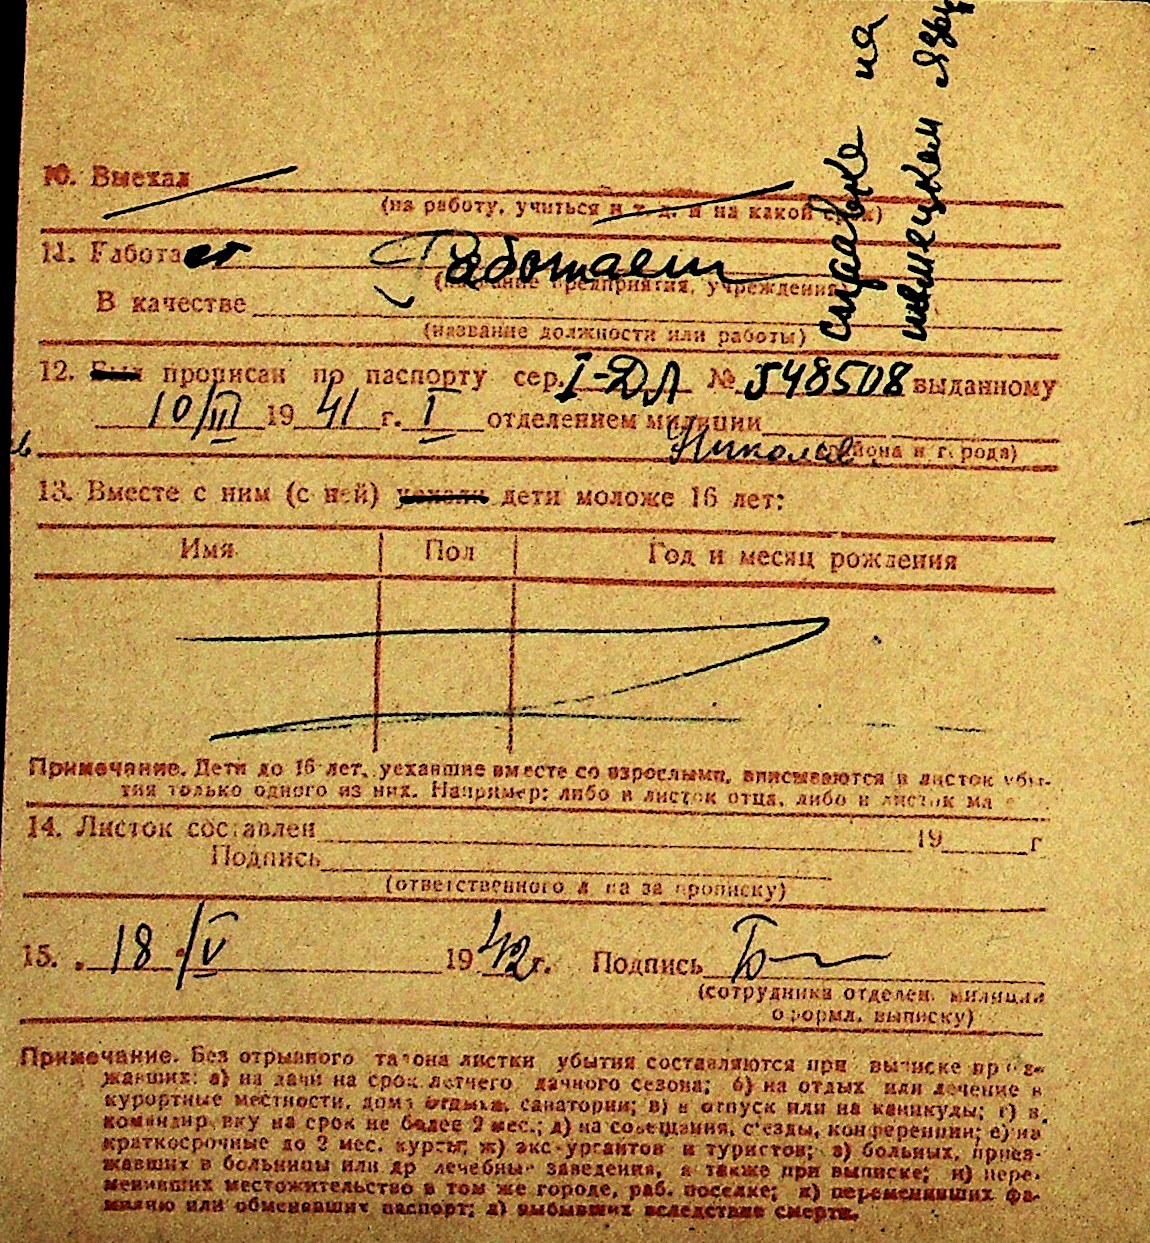 справка на
немецком языке
10. Выехал
(на работу, учиться и т. д. и на какой срок)
11. Работает Работает
(название предприятия, учреждения)
В качестве
(название должности или работы)
12. Был прописан по паспорту сер. I-ДЛ № 548508 выданному
10/III 1941 г. I отделением милиции
Николаев (района и города)
13. Вместе с ним (с ней) уехали дети моложе 16 лет:
Имя Пол Год и месяц рождения
Примечание. Дети до 16 лет, уехавшие вместе со взрослыми, вписываются в листок убы-
тия только одного из них. Например: либо в листок отца, либо в листок ма
14. Листок составлен 19 г
Подпись
(ответственного лица за прописку)
15. 18/V 1942 г. Подпись
(сотрудника отделен. милиции
оформл. выписку)
Примечание. Без отрывного талона листки убытия составляются при выписке приез-
жавших: а) на дачи на срок летнего дачного сезона; б) на отдых или лечение в
курортные местности, дома отдыха, санатории; в) в отпуск или на каникулы; г) в
командировку на срок не более 2 мес.; д) на совещания, съезды, конференции; е) на
краткосрочные до 2 мес. курсы; ж) экскурсантов и туристов; з) больных, приез-
жавших в больницы или др лечебные заведения, а также при выписке; и) пере-
менивших местожительство в том же городе, раб. поселке; к) переменивших фа-
милию или обменявших паспорт; л) выбывших вследствие смерти.